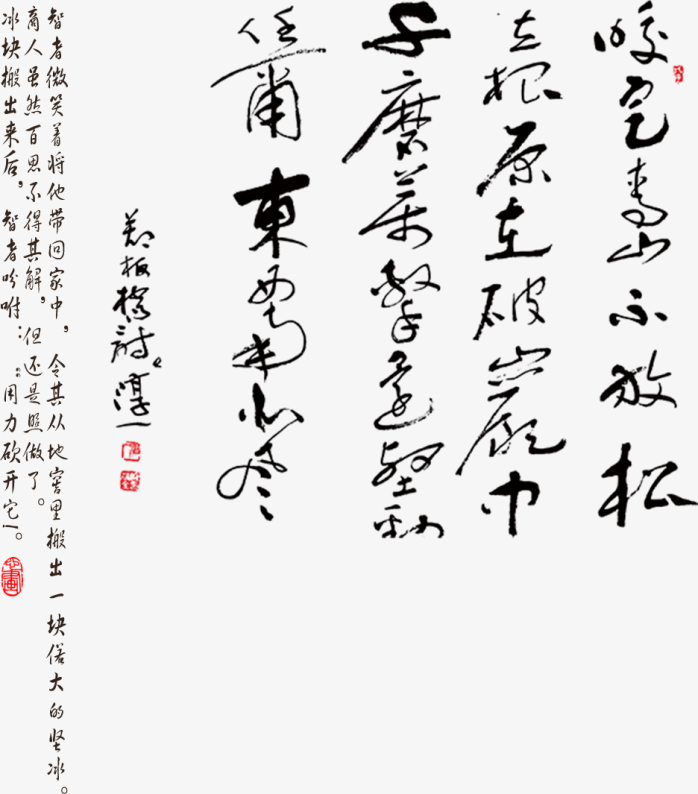 咬定青山不放松
立根原在破巖中
千磨萬擊還堅勁
任爾東西南北風
郑板橋詩 淳一
智者微笑着将他带回家中，令其从地窖里搬出一块偌大的坚冰。
商人虽然百思不得其解，但还是照做了。
冰块搬出来后，智者吩咐：“用力砍开它！。